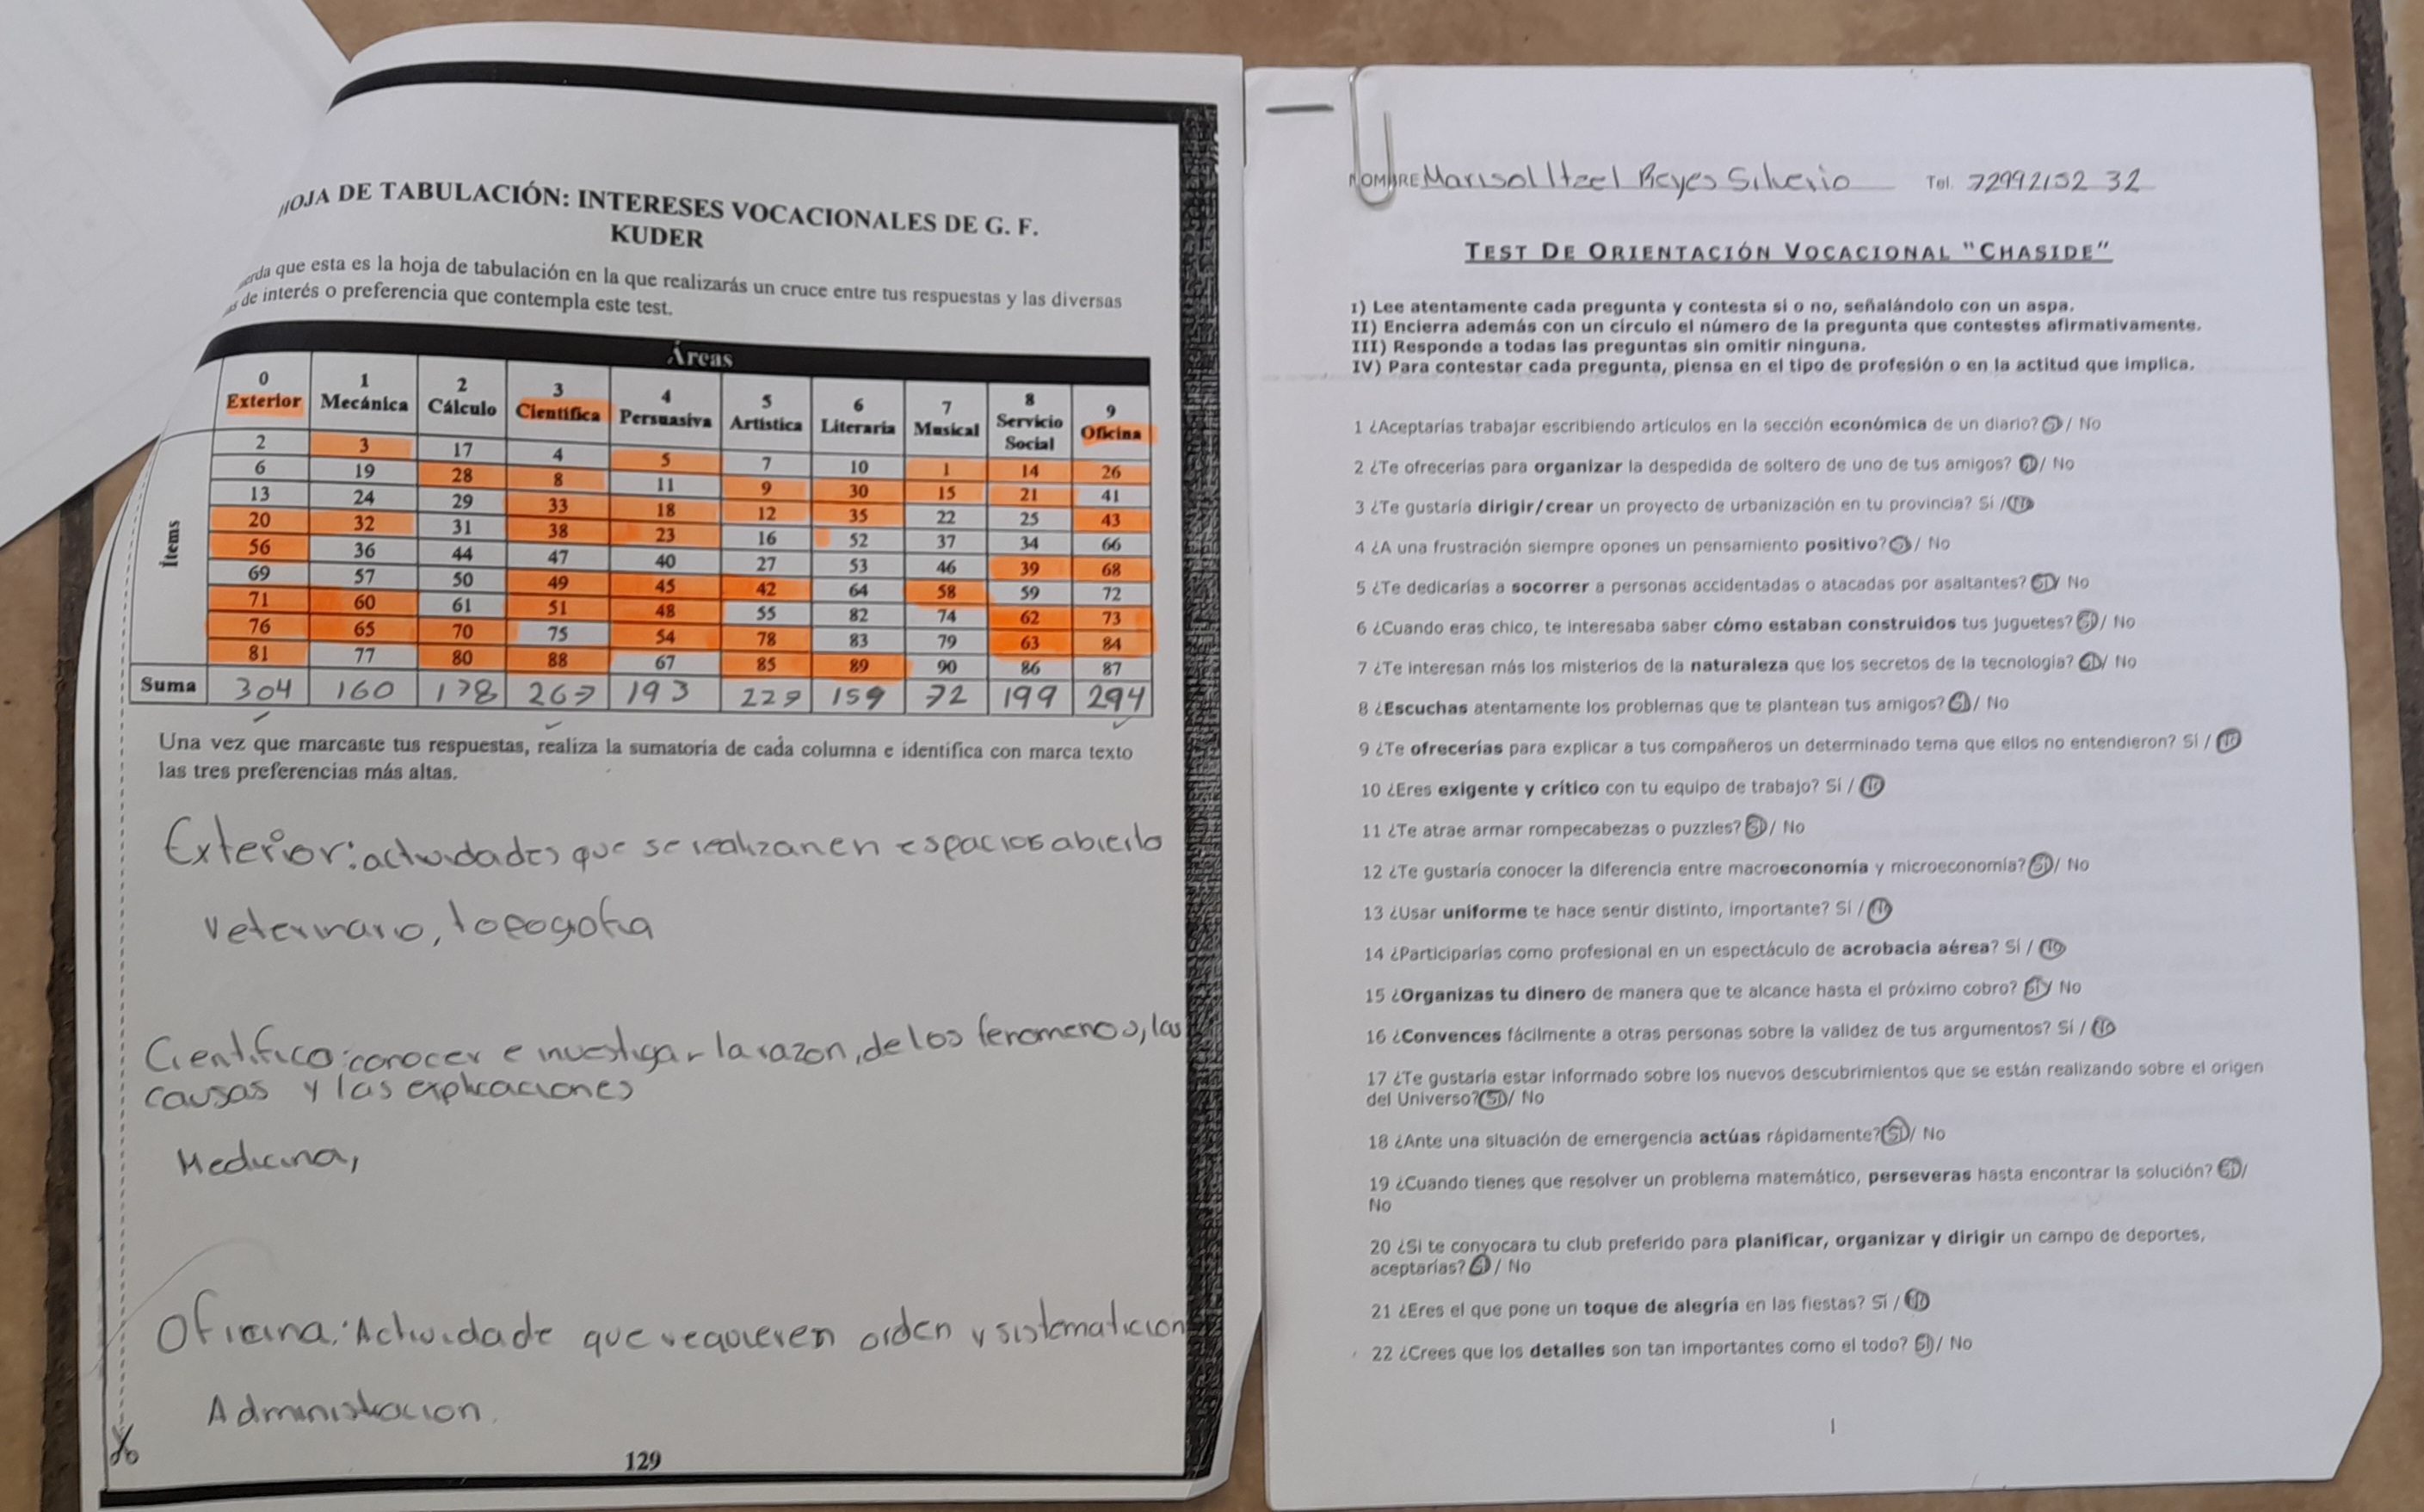 HOJA DE TABULACIÓN: INTERESES VOCACIONALES DE G. F.
KUDER
que esta es la hoja de tabulación en la que realizarás un cruce entre tus respuestas y las diversas
de interés o preferencia que contempla este test.
Áreas
0 1 2 3 4 5 6 7 8 9
Exterior Mecánica Cálculo Científica Persuasiva Artística Literaria Musical Servicio Social Oficina
Ítems
2 3 17 4 5 7 10 1 14 26
6 19 28 8 11 9 30 15 21 41
13 24 29 33 18 12 35 22 25 43
20 32 31 38 23 16 52 37 34 66
56 36 44 47 40 27 53 46 39 68
69 57 50 49 45 42 64 58 59 72
71 60 61 51 48 55 82 74 62 73
76 65 70 75 54 78 83 79 63 84
81 77 80 88 67 85 89 90 86 87
Suma 304 160 178 267 193 227 159 72 199 294
Una vez que marcaste tus respuestas, realiza la sumatoria de cada columna e identifica con marca texto
las tres preferencias más altas.
Exterior: actividades que se realizan en espacios abierto
Veterinario, topografia
Cientifico: conocer e investigar la razon, de los fenomenos, las
causas y las explicaciones
Medicina,
Oficina: Actividade que requieren orden y sistematicion
Administracion.
129
NOMBRE Marisol Itzel Reyes Silverio Tel. 7299215232
TEST DE ORIENTACIÓN VOCACIONAL "CHASIDE"
I) Lee atentamente cada pregunta y contesta sí o no, señalándolo con un aspa.
II) Encierra además con un círculo el número de la pregunta que contestes afirmativamente.
III) Responde a todas las preguntas sin omitir ninguna.
IV) Para contestar cada pregunta, piensa en el tipo de profesión o en la actitud que implica.
1 ¿Aceptarías trabajar escribiendo artículos en la sección económica de un diario? Sí / No
2 ¿Te ofrecerías para organizar la despedida de soltero de uno de tus amigos? Sí / No
3 ¿Te gustaría dirigir/crear un proyecto de urbanización en tu provincia? Sí / No
4 ¿A una frustración siempre opones un pensamiento positivo? Sí / No
5 ¿Te dedicarías a socorrer a personas accidentadas o atacadas por asaltantes? Sí / No
6 ¿Cuando eras chico, te interesaba saber cómo estaban construidos tus juguetes? Sí / No
7 ¿Te interesan más los misterios de la naturaleza que los secretos de la tecnología? Sí / No
8 ¿Escuchas atentamente los problemas que te plantean tus amigos? Sí / No
9 ¿Te ofrecerías para explicar a tus compañeros un determinado tema que ellos no entendieron? Sí / No
10 ¿Eres exigente y crítico con tu equipo de trabajo? Sí / No
11 ¿Te atrae armar rompecabezas o puzzles? Sí / No
12 ¿Te gustaría conocer la diferencia entre macroeconomía y microeconomía? Sí / No
13 ¿Usar uniforme te hace sentir distinto, importante? Sí / No
14 ¿Participarías como profesional en un espectáculo de acrobacia aérea? Sí / No
15 ¿Organizas tu dinero de manera que te alcance hasta el próximo cobro? Sí / No
16 ¿Convences fácilmente a otras personas sobre la validez de tus argumentos? Sí / No
17 ¿Te gustaría estar informado sobre los nuevos descubrimientos que se están realizando sobre el origen
del Universo? Sí / No
18 ¿Ante una situación de emergencia actúas rápidamente? Sí / No
19 ¿Cuando tienes que resolver un problema matemático, perseveras hasta encontrar la solución? Sí /
No
20 ¿Si te convocara tu club preferido para planificar, organizar y dirigir un campo de deportes,
aceptarías? Sí / No
21 ¿Eres el que pone un toque de alegría en las fiestas? Sí / No
22 ¿Crees que los detalles son tan importantes como el todo? Sí / No
1